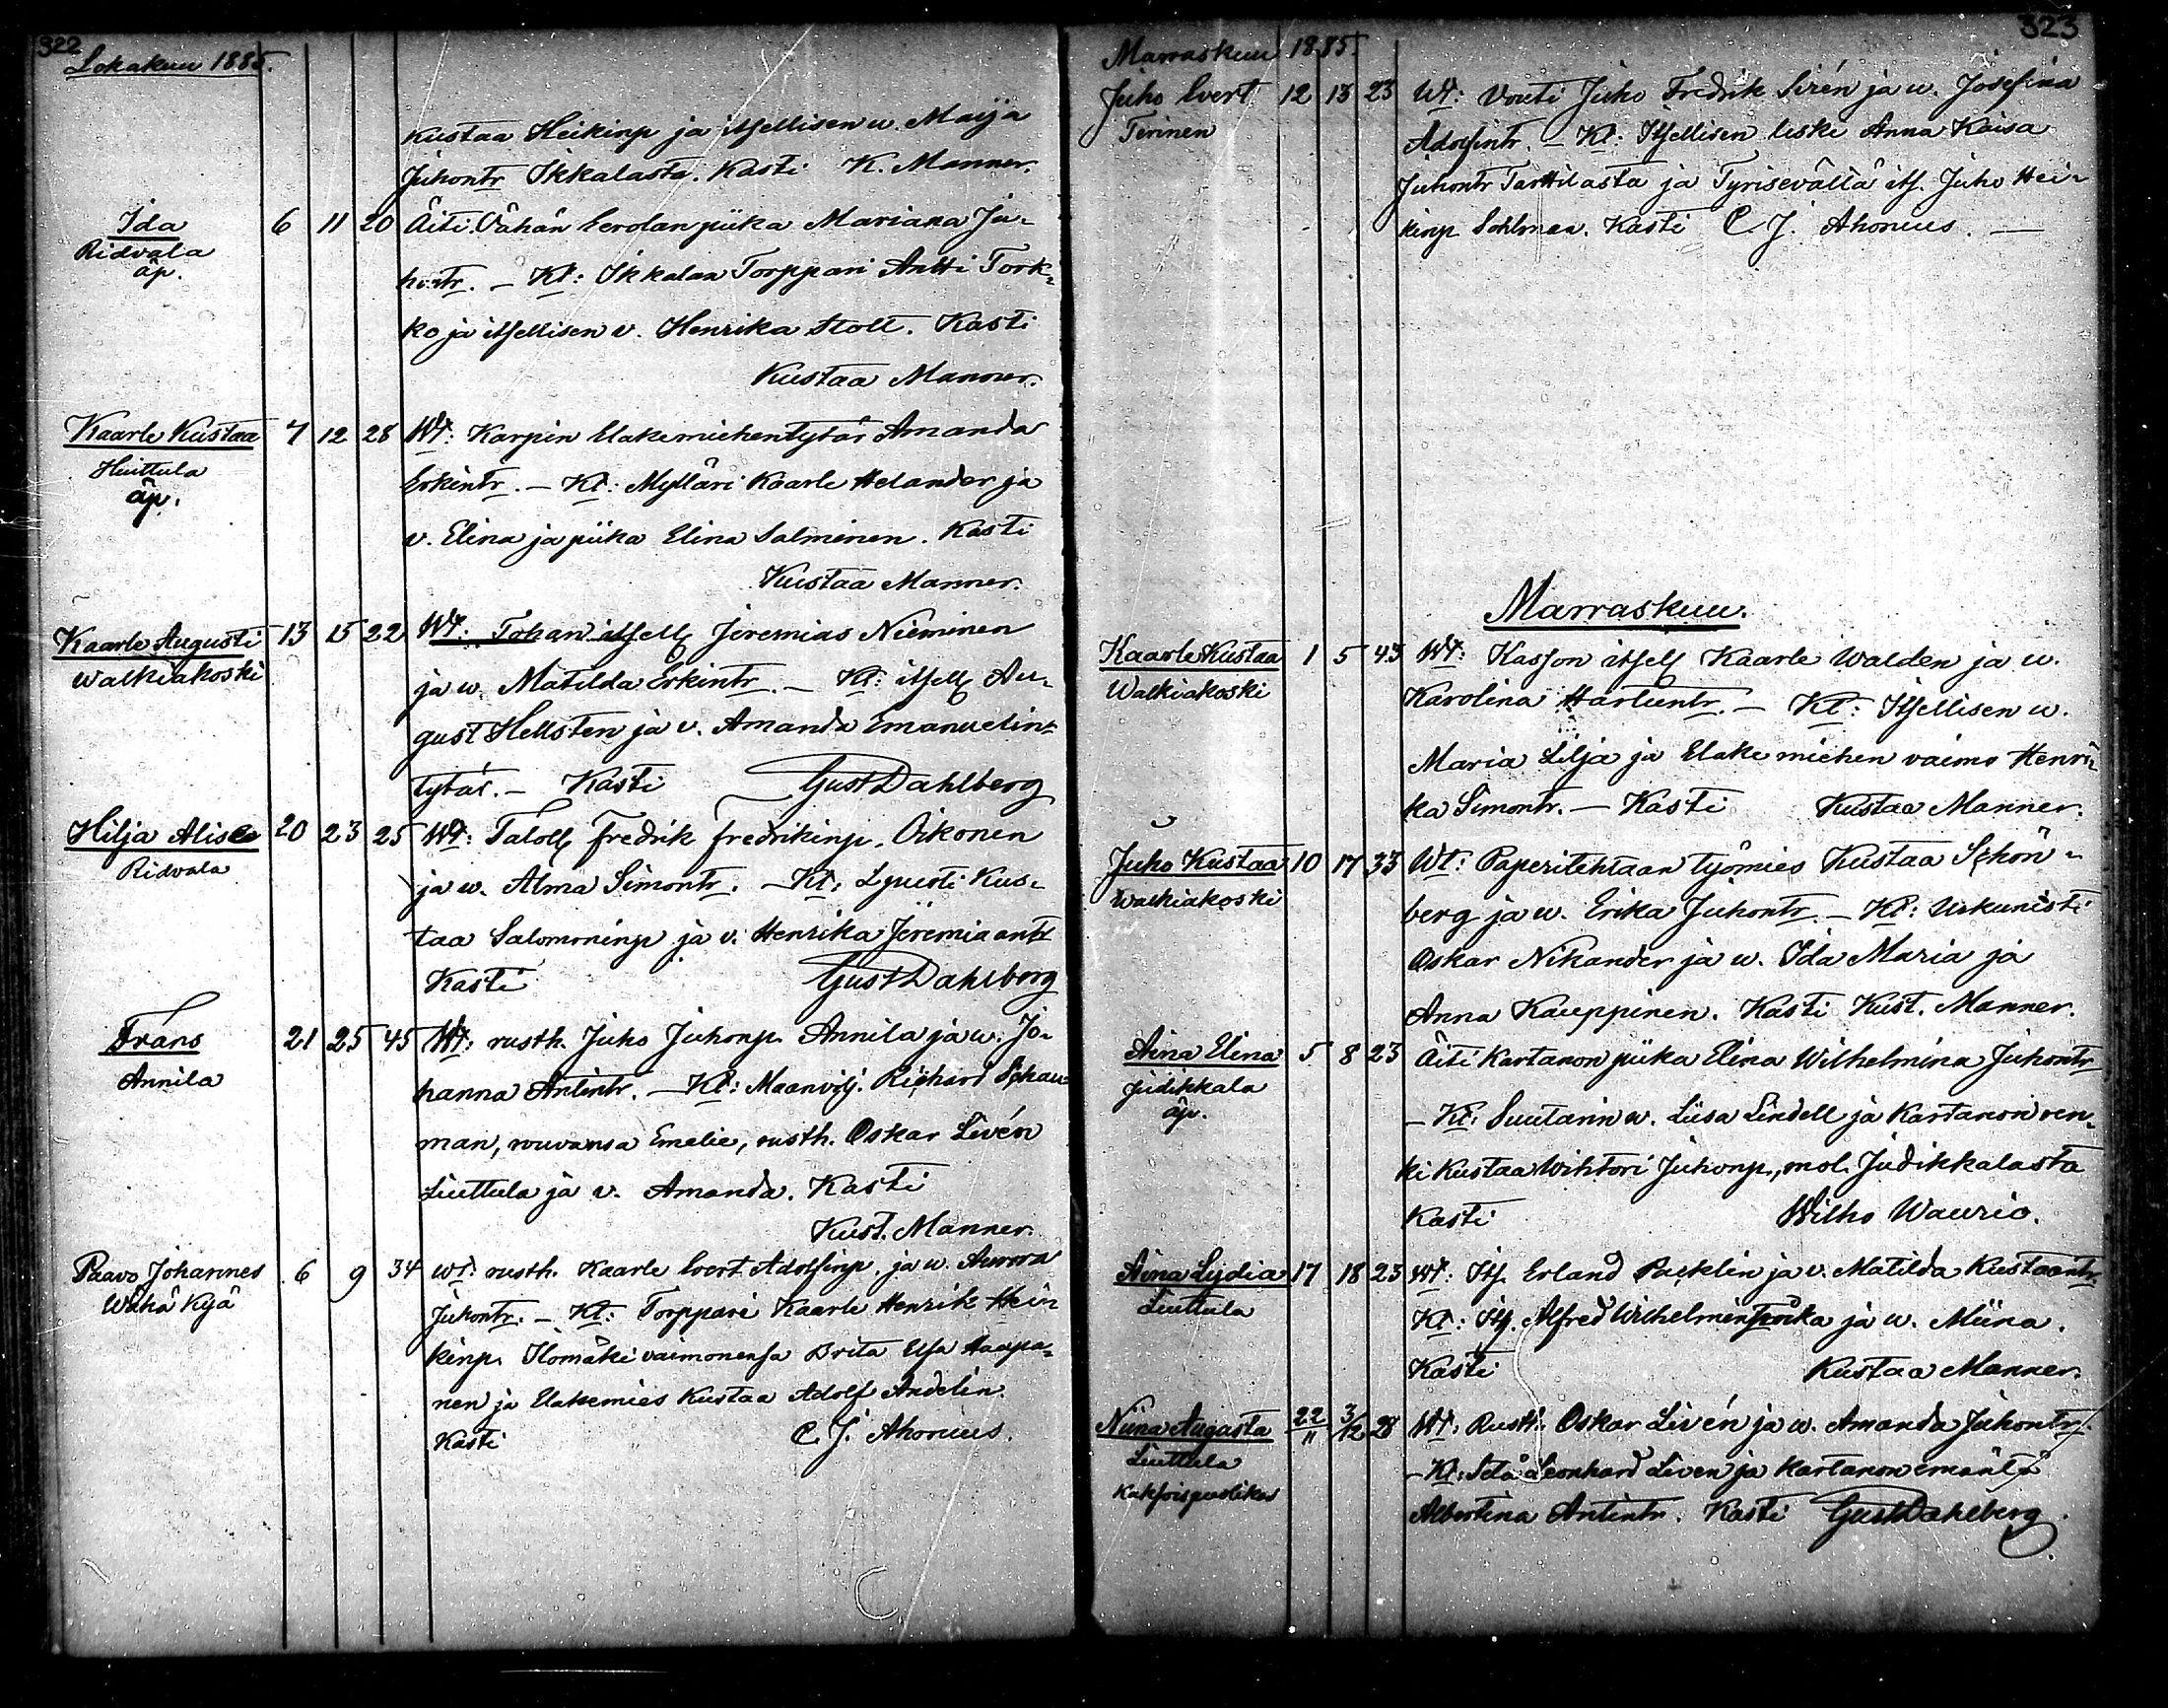 322
Lokakuu 1885.
Kustaa Heikinp ja itsellisen w. Maija
Juhontr Ikkalasta. Kasti K. Manner.
Ida 6 11 20 Äiti: Vähän Eerolan piika Mariana Ju-
Ridvala
äp.
hontr. - Kt: Ikkalan Torppari Antti Tork-
ko ja itsellisen v. Henrika Stolt. Kasti
Kustaa Manner.
Kaarle Kustaa 7 12 28 Wt: Karpin Elakemiehentytär Amanda
Huittula
äp.
Erkintr. - Kt: Mylläri Kaarle Helander ja
v. Elina ja piika Elina Salminen. Kasti
Kustaa Manner.
Kaarle Augusti 13 15 22 Wt: itsell Jeremias Nieminen
Walkiakoski
ja w. Matilda Erkintr. - Kt: itsell Au-
gust Hellsten ja v. Amanda Emanuelin-
tytär. - Kasti Gust Dahlberg
Hilja Alise 20 23 25 Wt: Taloll Fredrik Fredrikinp. Oikonen
Ridvala
ja w. Alma Simontr. - Kt: Kus-
taa Salomoninp ja v. Henrika Jeremiaantr
Kasti Gust Dahlberg
Frans 21 25 45 Wt: rusth. Juho Juhonp. Annila ja w. Jo-
Annila
hanna Antintr. - Kt: Maanvilj. Richard Schau-
man, rouvansa Emelie, rusth. Oskar Livén
Liuttula ja v. Amanda. Kasti
Kust. Manner.
Paavo Johannes 6 9 34 Wt: rusth. Kaarle Evert Adolfinp. ja w. Aurora
Wähä Kyä
Juhontr. - Kt: Torppari Kaarle Henrik Hei-
kinp. Ilomäki vaimonensa Brita Elsa Haapa-
nen ja Elakemies Kustaa Adolf Andelin.
Kasti C. J. Ahonius.
323
Marraskuu 1885.
Juho Evert 12 13 23 Wt: Vouti Juho Fredrik Sirén ja w. Josefina
Terinen
Adolfintr. - Kt: Itsellisen leski Anna Kaisa
Juhontr Tarttilasta ja Tyrisevältä its. Juho Hei-
kinp Sohlman. Kasti C J. Ahonius. -
Marraskuu.
Kaarle Kustaa 1 5 43 Wt: Kasson itsell Kaarle Walden ja w.
Walkiakoski
Karolina Hartuntr. - Kt: Itsellisen w.
Maria Lilja ja Elake miehen vaimo Henri-
ka Simontr. - Kasti Kustaa Manner.
Juho Kustaa 10 17 33 Wt: Paperitehtaan työmies Kustaa Schön-
Walkiakoski
berg ja w. Erika Juhontr. - Kt: Urkunisti
Oskar Nikander ja w. Ida Maria ja
Anna Kauppinen. Kasti Kust. Manner.
Aina Elina 5 8 23 Äiti Kartanon piika Elina Wilhelmina Juhontr
Judikkala
äp.
- Kt: Suutarin w. Liisa Lindell ja Kartanon ren-
ki Kustaa Wihtori Juhonp., mol. Judikkalasta
Kasti Wilho Waurio.
Aina Lydia 17 18 23 Wt: Its. Erland Packlin ja v. Matilda Kustaantr.
Liuttula
Kt: Its. Alfred Wilhelminpoika ja w. Miina.
Kasti Kustaa Manner.
Niina Augusta 22/11 3/12 28 Wt: Rusth. Oskar Livén ja w. Amanda Juhontr.
Liuttula
Kaksoispuolikas
- Kt: Setä Leonhard Liven ja kartanon emäntä
Albertina Antintr. Kasti Gust Dahlberg.